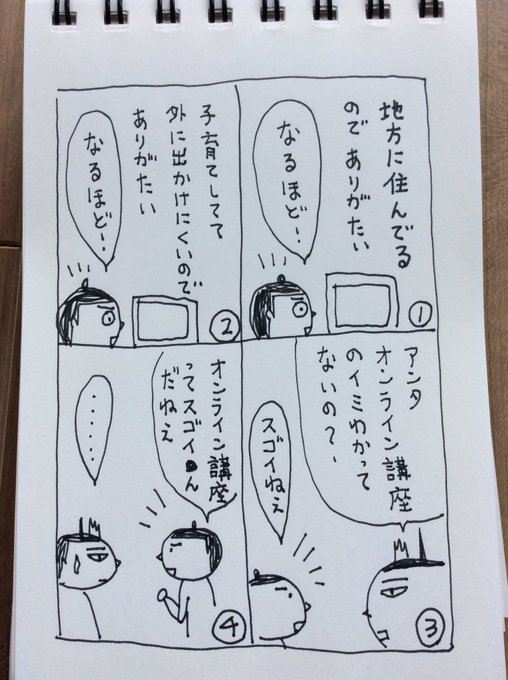 地方に住んでる
ので ありがたい
なるほど!
①
子育てしてて
外に出かけにくいので
ありがたい
なるほど!
②
アンタ
オンライン講座
のイミわかって
ないの?
スゴイねぇ
③
オンライン講座
ってスゴイん
だねぇ
・・・・・
④